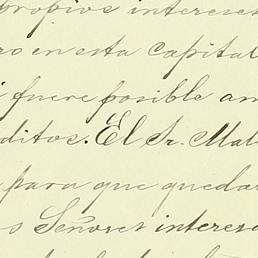 propios intereses
ro en esta capital
i fuere posible am
ditos. El Sr. Mal
para que quedar
s Señores interesa